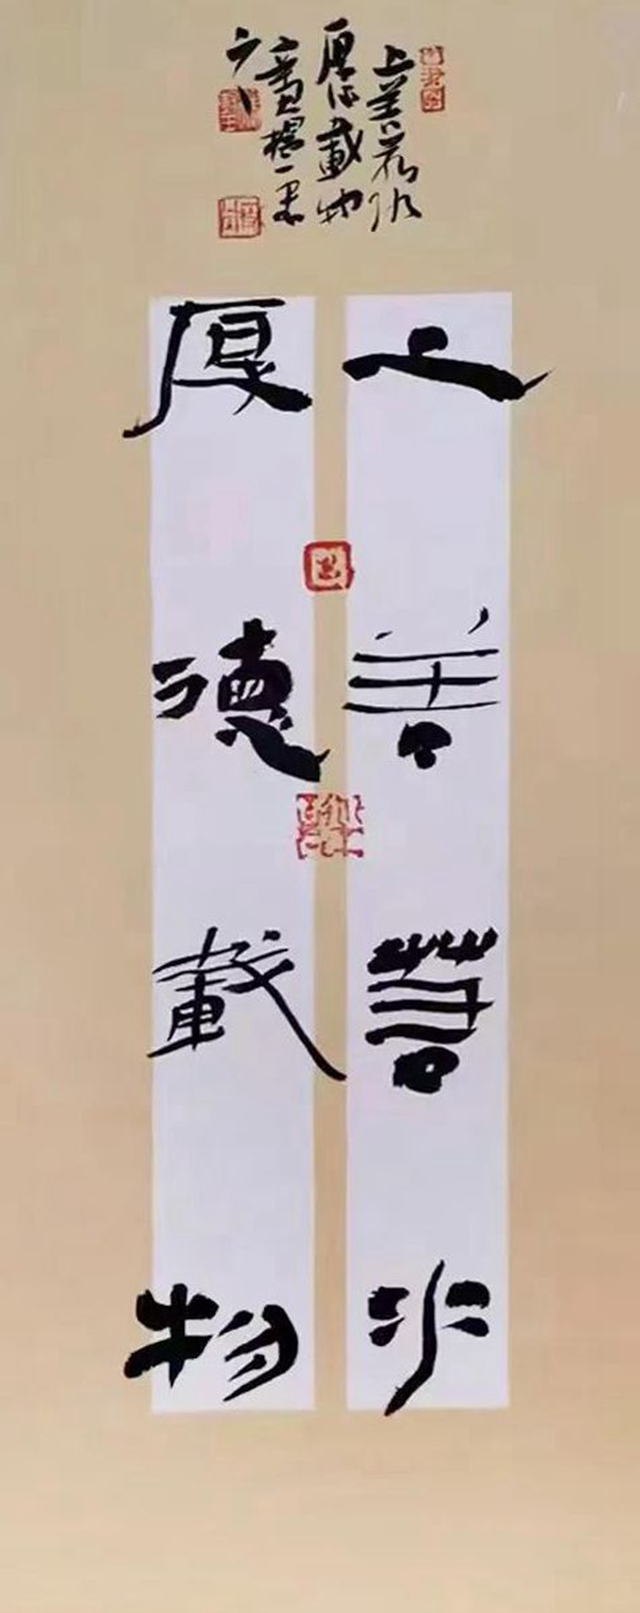 上善若水
厚德載物
上善若水
厚德載物